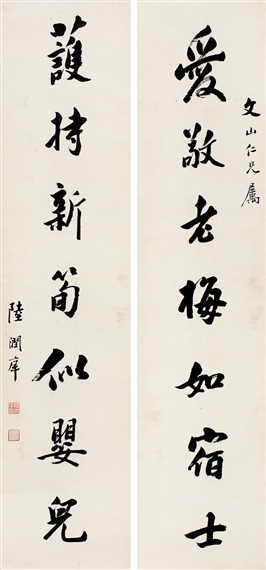 愛敬老梅如宿士
文山仁兄屬
護持新筍似嬰兒
陸潤庠